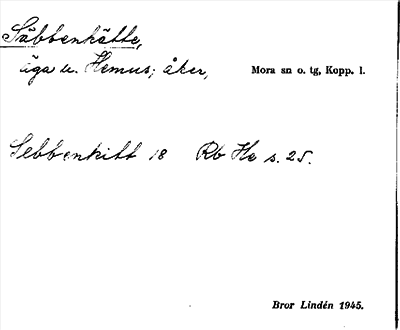 Säbbenhätte,
äga u. Hemus; åker, Mora sn o. tg, Kopp. l.
Sebbenhitt 18 Rb He s. 25.
Bror Lindén 1945.